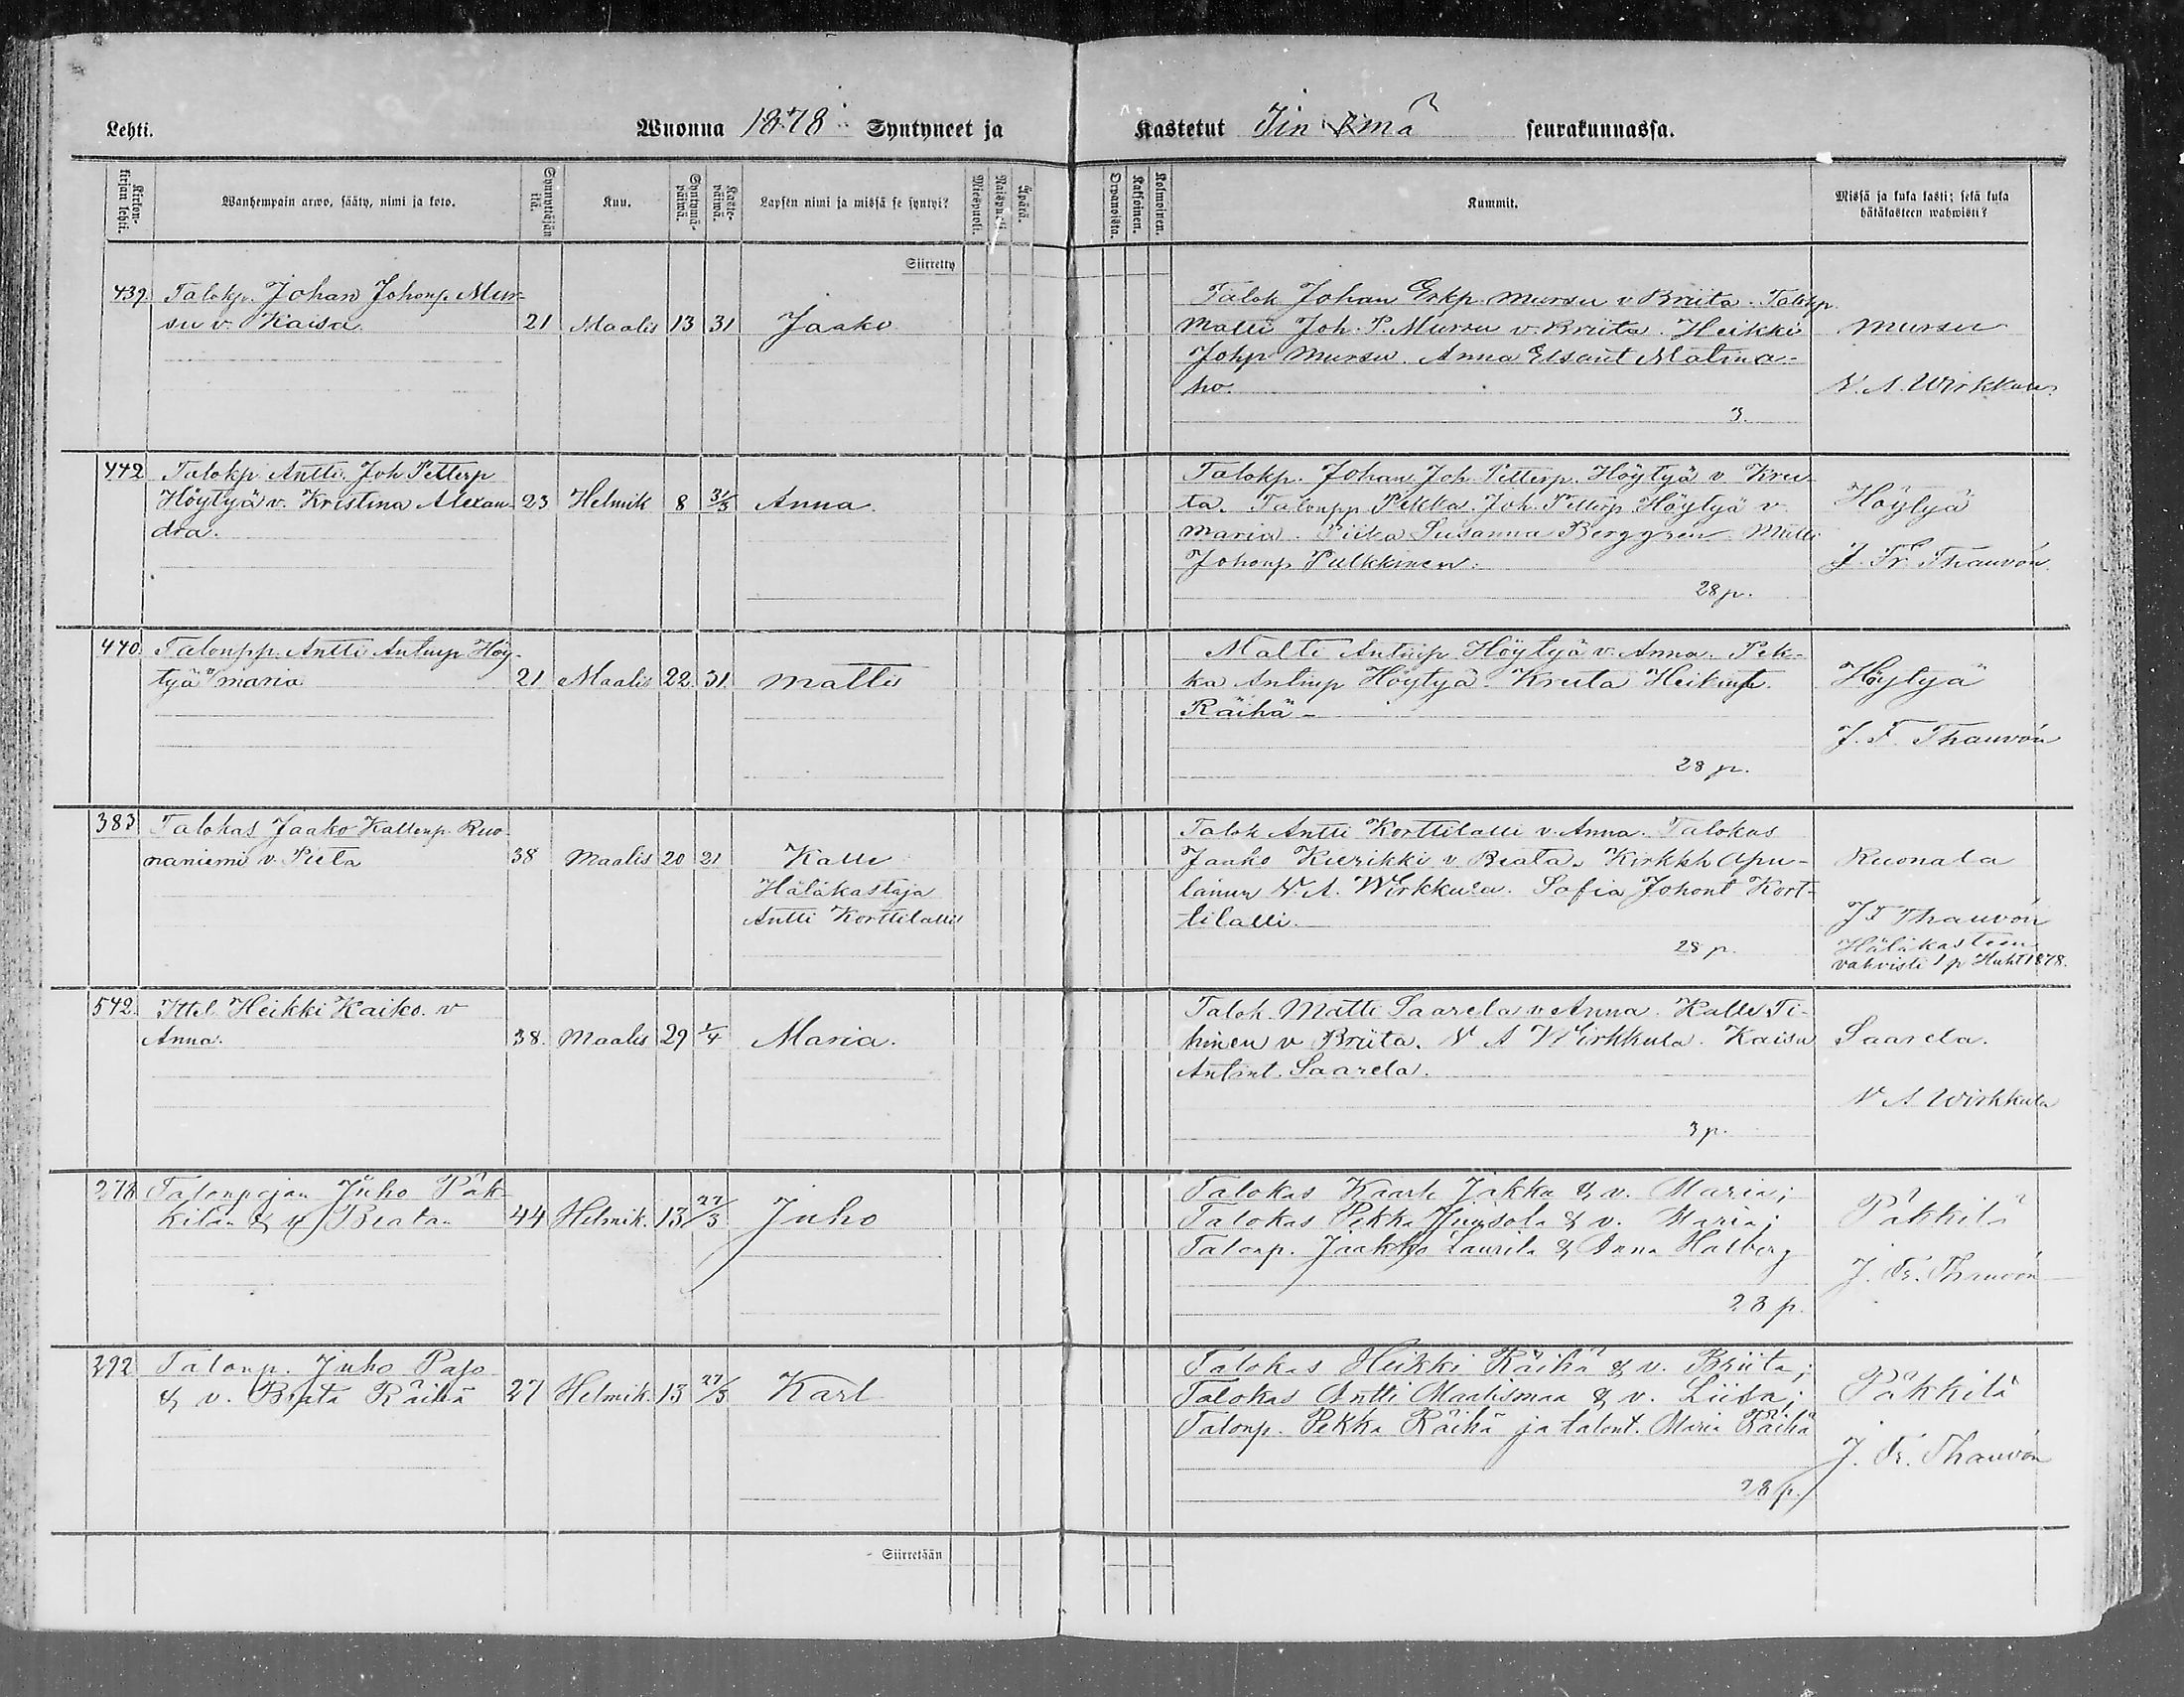 Lehti. Wuonna 1878 Syntyneet ja Kastetut Iin Emä seurakunnassa.
Kirkonkirjan lehti.
Wanhempain arwo, sääty, nimi ja koto.
Synnyttäjän ikä.
Kuu.
Syntymäpäiwä.
Kastepäiwä.
Lapsen nimi ja missä se syntyi?
Miespuoli.
Naispuoli.
Äpärä.
Orpanoista.
Kaksoinen.
Kolmoinen.
Kummit.
Missä ja kuka kasti; sekä kuka
hätäkasteen wahwisti?
Siirretty
439. Talokp. Johan Johonp. Mur-
su v. Kaisa. 21 Maalis 13 31 Jaako
Talok Johan Erkp. Mursu v Briita. Talokp.
Matti Joh. P. Mursu v. Briita. Heikki
Johp Mursu. Anna Esaint Matina-
ho.
3.
Mursu
N. A. Wirkkula
442 Talokp Antti Joh Petterp
Höytyä v. Kristina Alexan- 23 Helmik 8 31/3 Anna.
dra.
Talokp. Johan Joh. Petterp. Höytyä v. Kree-
ta. Talonpp Pekka Joh. Petterp Höytyä v.
Maria. Piika Susanna Berggren. Matti
Johonp Pulkkinen.
28 p.
Höytyä
J. Fr. Thauvón
440. Talonpp. Antti Antinp Höy-
tyä v maria 21 Maalis 22. 31. Matti
Matti Antinp. Höytyä v. Anna. Pek-
ka Antinp Höytyä. Kreeta Heikint.
Räihä -
28 p.
Höytyä
J. F. Thauvón
383 Talokas Jaako Kallenp. Ruo-
naniemi v. Pieta 38 Maalis 20 21 Kalle
Hätäkastaja
Antti Korttilalli
Talok Antti Korttilalli v. Anna. Talokas
Jaako Kierikki v. Beata. Kirkkh Apu-
lainen N. A. Wirkkula. Sofia Johont Kort-
tilalli.
28 p.
Ruonala
J F Thauvón
Hätäkasteen
vahvisti 1 p Huht 1878.
542. Ittel Heikki Kaiko. v
Anna. 38. Maalis 29 1/4 Maria.
Talok. Matti Saarela v Anna. Kalle Ti-
hinen v Briita. N A Wirkkula. Kaisa
Antint. Saarela.
3 p.
Saarela.
N A Wirkkula
278 Talonpojan Juho Päk-
kilän & v Beatan 44 Helmik. 13 27/3 Juho
Talokas Kaarle Jakka & v. Maria;
Talokas Pekka & v. Maria;
Talonp. Jaakko Laurila & Anna Hatberg
28 p.
Päkkilä
J. Fr. Thauvón
392 Talonp. Juho Pajo
& v. Brita Räihä 27 Helmik. 13 27/3 Karl
Talokas Heikki Räihä & v. Briita;
Talokas Antti Maalismaa & v. Liisa;
Talonp. Pekka Räihä ja talont. Maria Räihä
28 p.
Päkkilä
J. Fr. Thauvón
Siirretään